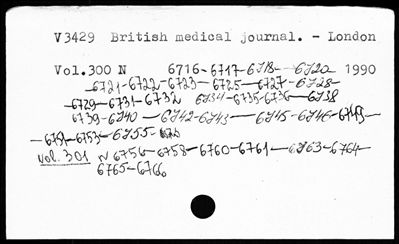 V3429 British medical journal. - London
Vol.300 N 6716-6717-6718- -6720 1990
-6721-6722-6723-6725-6727-6728-
-6729-6731-6732 6734-6735-6736-6738
6739-6740-6742-6743-6745-6746-
-6751-6753-6755-
Vol. 301 N 6756-6758-6760-6761-6763-6764-
6765-6766